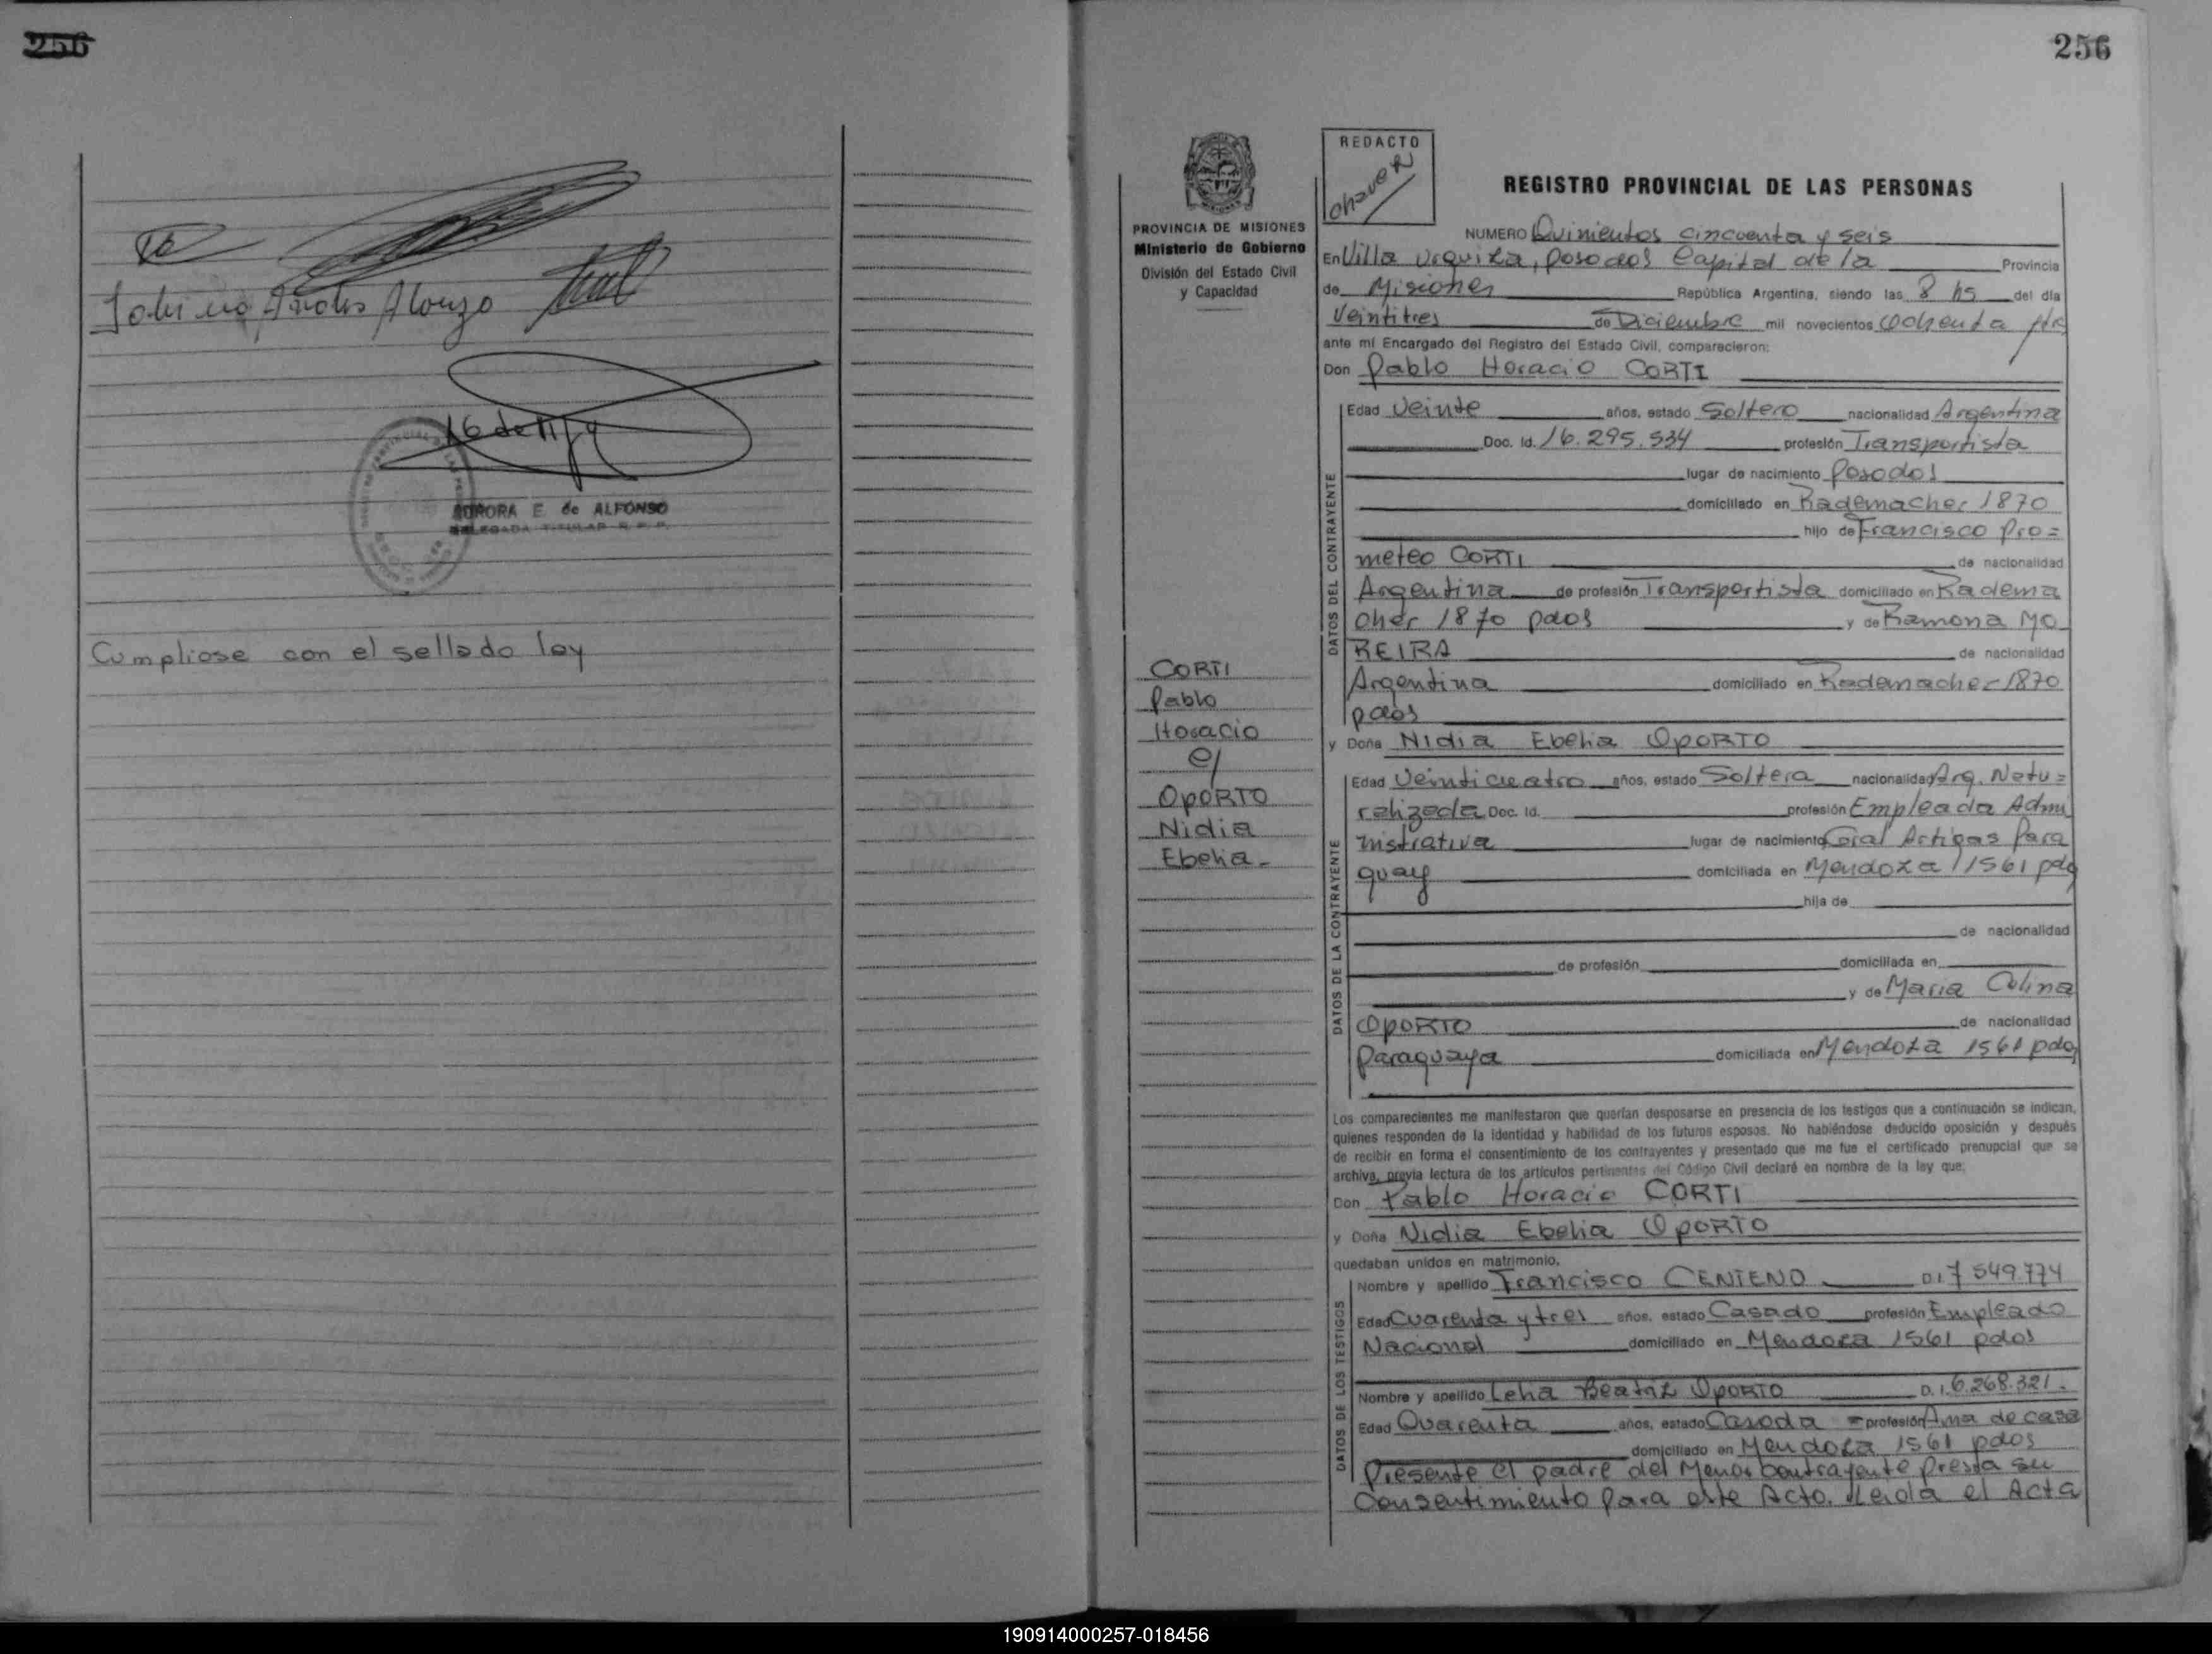 256
Cumpliose con el sellado ley
AURORA E de ALFONSO
DELEGADA TITULAR R. P. P.
256
REDACTO
PROVINCIA DE MISIONES
Ministerio de Gobierno
División del Estado Civil
y Capacidad
REGISTRO PROVINCIAL DE LAS PERSONAS
NUMERO Quinientos cincuenta y seis
En Villa Urquiza, Posadas Capital de la Provincia
de Misiones República Argentina, siendo las 8 hs del día
Veintitres de Diciembre mil novecientos Ochenta
ante mí Encargado del Registro del Estado Civil, comparecieron:
Don Pablo Horacio CORTI
DATOS DEL CONTRAYENTE
Edad Veinte años, estado Soltero nacionalidad Argentina
Doc. Id. 16.295.534 profesión Transportista
lugar de nacimiento Posadas
domiciliado en Rademacher 1870
hijo de Francisco Pro=
meteo CORTI de nacionalidad
Argentina de profesión Transportista domiciliado en Radema
cher 1870 pdas y de Ramona MO
REIRA de nacionalidad
Argentina domiciliado en Rademacher 1870
pdas
CORTI
Pablo
Horacio
c/
OPORTO
Nidia
Ebelia-
y Doña Nidia Ebelia OPORTO
DATOS DE LA CONTRAYENTE
Edad Veinticuatro años, estado Soltera nacionalidad Arg. Natu=
ralizada Doc. Id. profesión Empleada Admi
nistrativa lugar de nacimiento Gral Artigas Para
guay domiciliada en Mendoza 1561 pdas
hija de
de nacionalidad
de profesión domiciliada en
y de Maria Celina
OPORTO de nacionalidad
Paraguaya domiciliada en Mendoza 1561 pdas
Los comparecientes me manifestaron que querían desposarse en presencia de los testigos que a continuación se indican,
quienes responden de la identidad y habilidad de los futuros esposos. No habiéndose deducido oposición y después
de recibir en forma el consentimiento de los contrayentes y presentado que me fue el certificado prenupcial que se
archiva, previa lectura de los artículos pertinentes del Código Civil declaré en nombre de la ley que:
Don Pablo Horacio CORTI
y Doña Nidia Ebelia OPORTO
quedaban unidos en matrimonio.
DATOS DE LOS TESTIGOS
Nombre y apellido Francisco CENTENO D.I 7 549.774
Edad Cuarenta y tres años, estado Casado profesión Empleado
Nacional domiciliado en Mendoza 1561 pdas
Nombre y apellido Lelia Beatriz OPORTO D.I. 6.268.321.
Edad Cuarenta años, estado Casada = profesión Ama de casa
domiciliado en Mendoza 1561 pdas
Presente el padre del Menor contrayente presta su
Consentimiento para este Acto. Leida el Acta
190914000257-018456